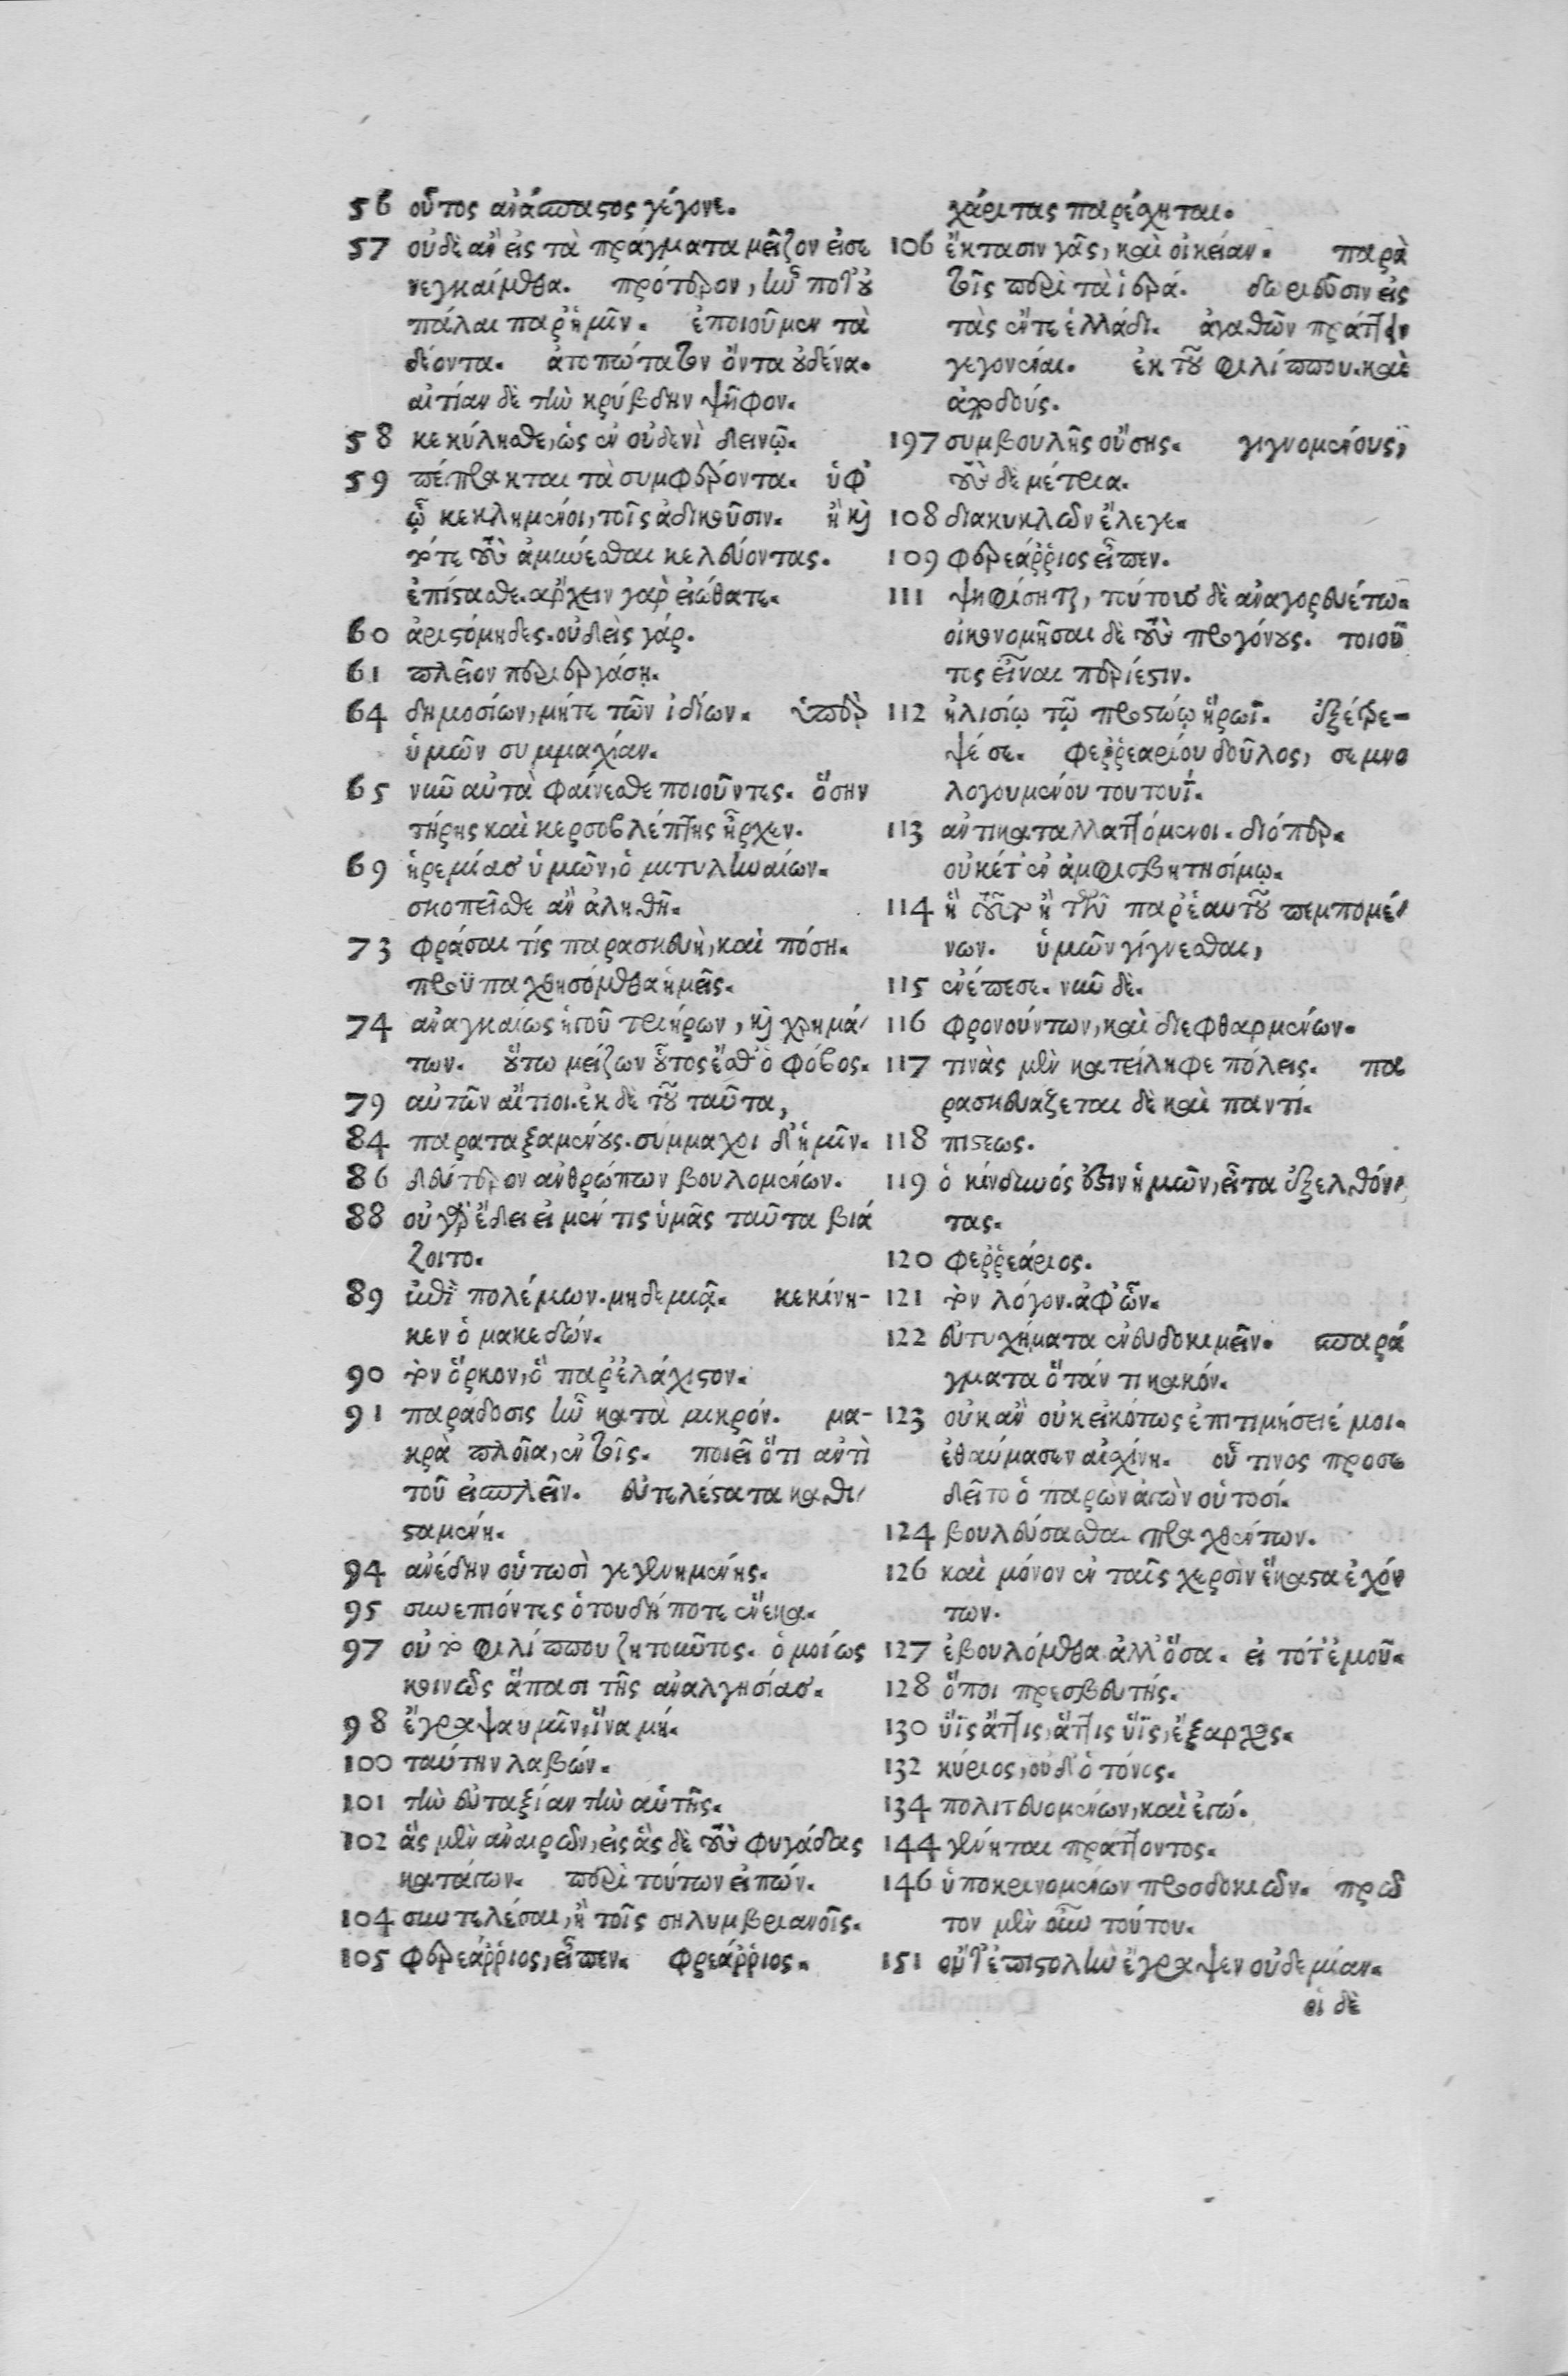 56 οὗτος ἀνάσπαστος γέγονε.
57 οὐδὲ ἂν εἰς τὰ πράγματα μεῖζον εἰσε
νεγκαίμεθα. πρότερον, ἦν ποτ' οὐ
πάλαι παρ' ἡμῖν. ἐποιοῦμεν τὰ
δέοντα. ἀτοπώτατον ὄντα οὐδένα.
αἰτίαν δὲ τὴν κρύβδην ψῆφον.
58 κεκύλησθε, ὡς ἐν οὐδενὶ δεινῷ.
59 πέπρακται τὰ συμφέροντα. ὑφ'
ᾧ κεκλημένοι, τοῖς ἀδικοῦσιν. ἢ καὶ
τότε τοὺς ἀμύνεσθαι κελεύοντας.
ἐπίστασθε. ἄρχειν γὰρ εἰώθατε.
60 ἀριστόμηδες. οὐδεὶς γάρ.
61 πλεῖον περιεργάσῃ.
64 δημοσίων, μήτε τῶν ἰδίων. ὑπὲρ
ὑμῶν συμμαχίαν.
65 νῦν αὐτὰ φαίνεσθε ποιοῦντες. ὅσην
τήρης καὶ κερσοβλέπτης ἦρχεν.
69 ἠρεμίας ὑμῶν, ὁ μιτυληναίων.
σκοπεῖσθε ἂν ἀληθῆ.
73 φράσαι τίς παρασκευὴ, καὶ πόση.
προϋπαχθησόμεθα ἡμεῖς.
74 ἀναγκαίως ἡ τοῦ τριήρων, καὶ χρημά
των. οὕτω μείζων οὗτος ἔσθ' ὁ φόβος.
79 αὐτῶν αἴτιοι. ἐκ δὲ τοῦ ταῦτα,
84 παραταξαμένους. σύμμαχοι δ' ἡμῖν.
86 δεύτερον ἀνθρώπων βουλομένων.
88 οὐ γὰρ ἔδει εἰ μέν τις ὑμᾶς ταῦτα βιά
ζοιτο.
89 ἐπὶ πολέμων. μηδεμιᾷ. κεκίνη-
κεν ὁ μακεδών.
90 τὸν ὅρκον, ὃ παρ' ἐλάχιστον.
91 παράδοσις ἦν κατὰ μικρόν. μα-
κρὰ πλοῖα, ἐν τοῖς. ποιεῖ ὅτι ἀντὶ
τοῦ εἰσπλεῖν. εὐτελέστατα καθι
σαμένη.
94 ἀνέδην οὑτωσὶ γεγενημένης.
95 συνεπιόντες ὁτουδήποτε ἕνεκα.
97 οὐ τὸ φιλίππου ζητοῦντος. ὁμοίως
κοινῶς ἅπασι τῆς ἀναλγησίας.
98 ἔγραψα υμῖν, ἵνα μή.
100 ταύτην λαβών.
101 τὴν εὐταξίαν τὴν αὑτῆς.
102 ἃς μὲν ἀναιρῶν, εἰς ἃς δὲ τοὺς φυγάδας
κατάγων. περὶ τούτων εἰπών.
104 συντελέσαι, ἢ τοῖς σηλυμβριανοῖς.
105 φερεάῤῥιος, εἶπεν. φρεάῤῥιος.
χάριτας παρέχηται.
106 ἔκτασιν γᾶς, καὶ οἰκείαν. παρὰ
τοῖς περὶ τὰ ἱερά. δωριοῦσιν εἰς
τὰς ἔν τε ἑλλάδι. ἀγαθῶν πράττεν
γεγονέναι. ἐκ τοῦ φιλίππου. καὶ
197 συμβουλῆς οὔσης. γιγνομένους,
τοὺς δὲ μέτρια.
108 διακυκλῶν ἔλεγε.
109 φερεάῤῥιος εἶπεν.
111 ψηφίσηται, τούτοις δὲ ἀναγορευέτω.
οἰκονομῆσαι δὲ τοὺς προγόνους. τοιοῦ
τος εἶναι περίεστιν.
112 ἡλισίῳ τῷ προστώῳ ἥρωϊ. ἐξέθρε-
ψέ σε. φεῤῥεαρίου δοῦλος, σεμνο
λογουμένου τουτουΐ.
113 ἀντικαταλλαττόμενοι. διόπερ.
οὐκέτ' ἐν ἀμφισβητησίμῳ.
παρ' ἑαυτοῦ πεμπομέ
νων. ὑμῶν γίγνεσθαι,
115 ἐνέπεσε. νῦν δὲ.
116 φρονούντων, καὶ διεφθαρμένων.
117 τινὰς μὲν κατείληφε πόλεις. πα
ρασκευάζεται δὲ καὶ παντί.
118 πίστεως.
119 ὁ κίνδυνός ἐστιν ἡμῶν, εἶτα ἐξελθόν
τας.
120 φεῤῥεάριος.
121 τὸν λόγον. ἀφ' ὧν.
122 εὐτυχήματα ἐνευδοκιμεῖν. σπαρά
γματα ὅτάν τι κακόν.
123 οὐκ ἂν οὐκ εἰκότως ἐπιτιμήσειέ μοι.
ἐθαύμασεν αἰσχίνη. οὗ τινος προσε
δεῖτο ὁ παρὼν ἀγὼν οὑτοσί.
124 βουλεύσασθαι πραχθέντων.
126 καὶ μόνον ἐν ταῖς χερσὶν ἕκαστα ἐχόν
των.
127 ἐβουλόμεθα ἀλλ' ὅσα. εἰ τότ' ἐμοῦ.
128 ὅποι πρεσβευτής.
130 ὕϊς ἄττις, ἄττις ὕϊς, ἔξαρχος.
132 κύριος, οὐδ' ὁ τόνος.
134 πολιτευομένων, καὶ ἐγώ.
144 γένηται πράττοντος.
146 ὑποκρινομένων προσδοκιῶν. πρῶ
τον μὲν οὖν τούτου.
151 οὔτ' ἐπιστολὴν ἔγραψεν οὐδεμίαν.
οἱ δὲ